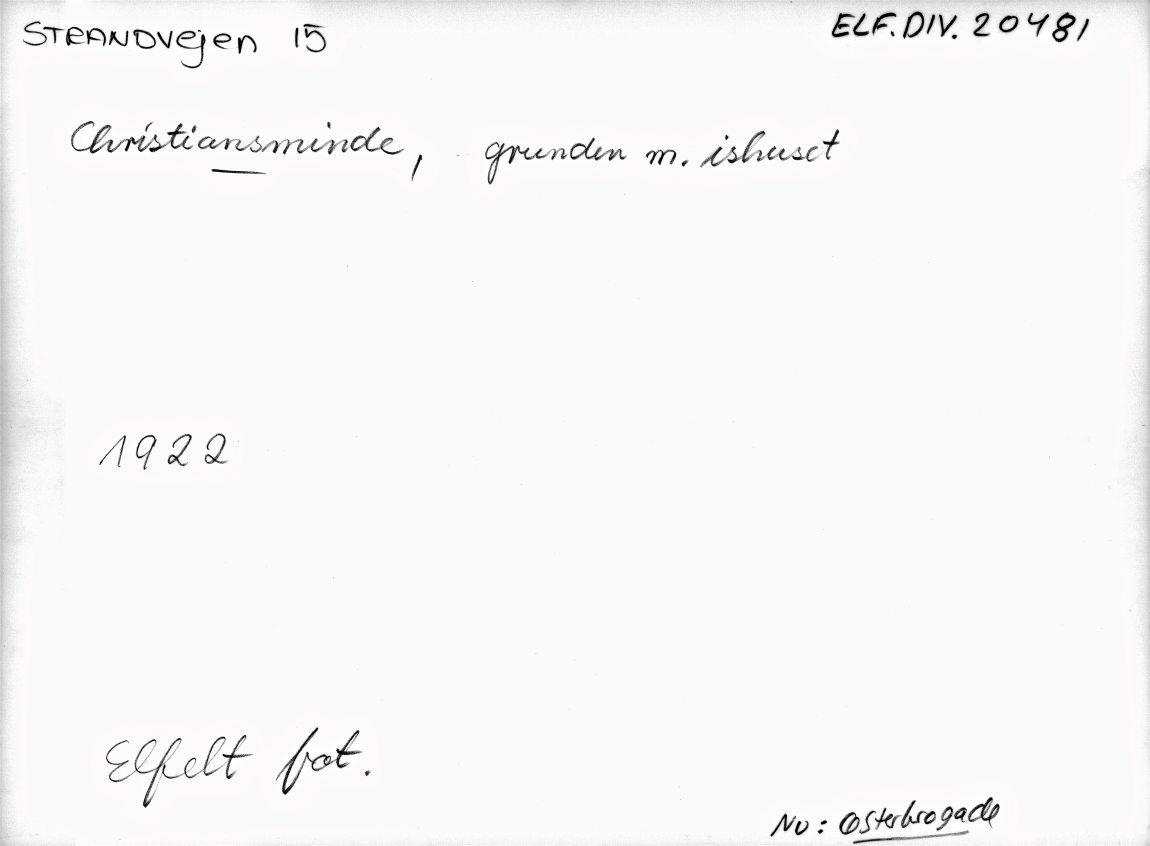 STRANDVejen 15
ELF.DIV. 20481
Christiansminde, grunden m. ishuset
1922
Elfelt fot.
Nu: Østerbrogade